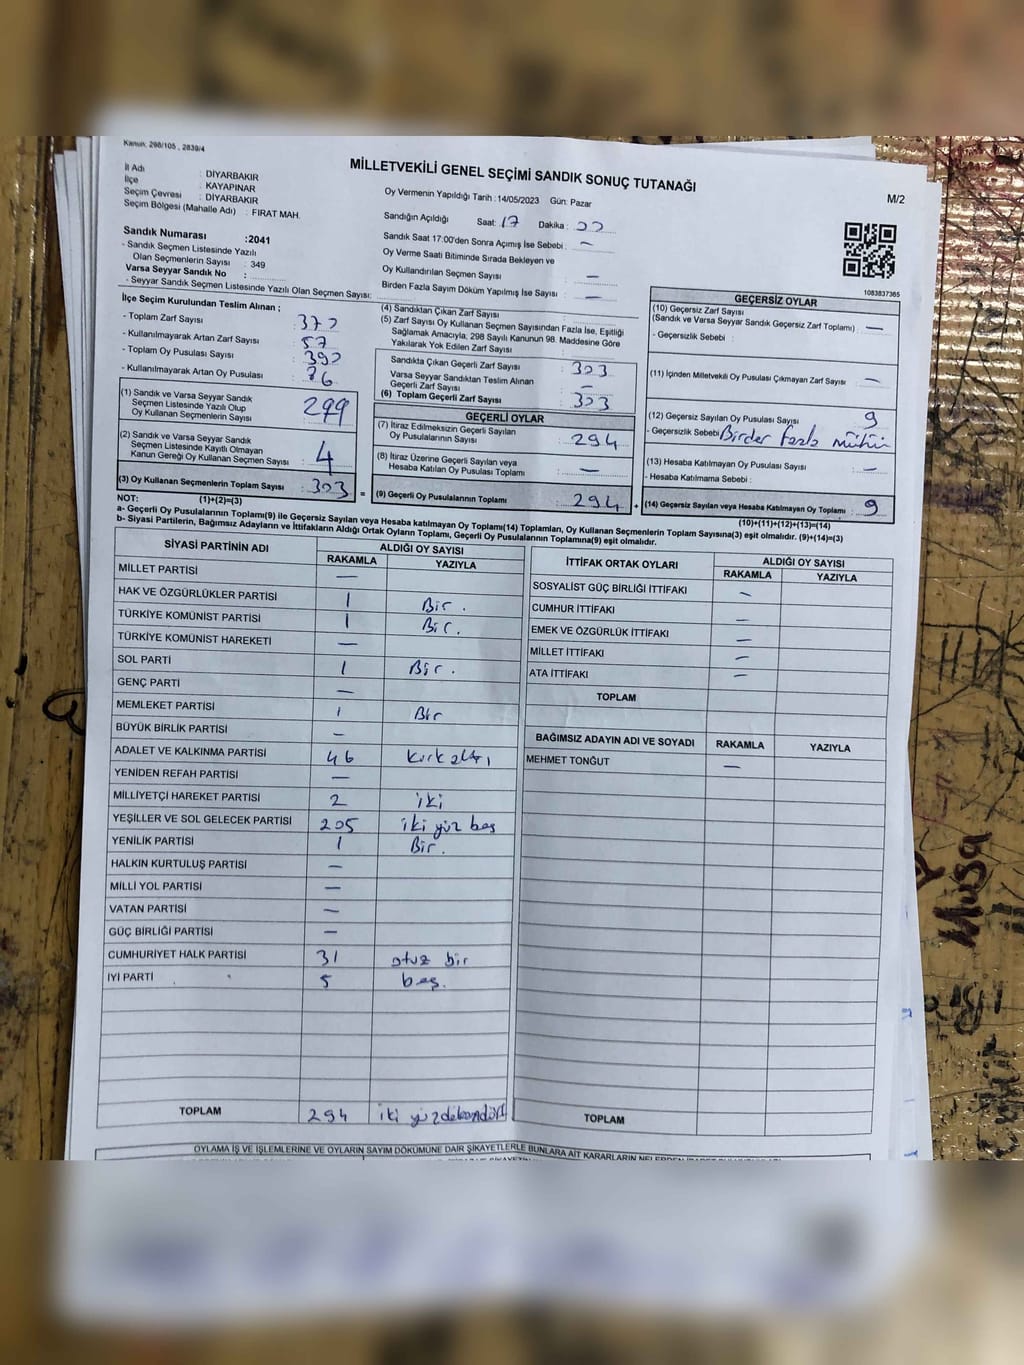 Kanun. 298/105 , 2839/4
MİLLETVEKİLİ GENEL SEÇİMİ SANDIK SONUÇ TUTANAĞI
M/2
İl Adı : DİYARBAKIR
İlçe : KAYAPINAR
Seçim Çevresi : DİYARBAKIR
Seçim Bölgesi (Mahalle Adı) : FIRAT MAH.
Oy Vermenin Yapıldığı Tarih : 14/05/2023 Gün: Pazar
Sandığın Açıldığı Saat: 17 Dakika :
Sandık Saat 17:00'den Sonra Açılmış İse Sebebi : –
Oy Verme Saati Bitiminde Sırada Bekleyen ve
Oy Kullandırılan Seçmen Sayısı : –
Birden Fazla Sayım Döküm Yapılmış İse Sayısı : –
Sandık Numarası : 2041
- Sandık Seçmen Listesinde Yazılı
Olan Seçmenlerin Sayısı : 349
Varsa Seyyar Sandık No :
- Seyyar Sandık Seçmen Listesinde Yazılı Olan Seçmen Sayısı:
1083837365
İlçe Seçim Kurulundan Teslim Alınan ;
- Toplam Zarf Sayısı :
- Kullanılmayarak Artan Zarf Sayısı : 57
- Toplam Oy Pusulası Sayısı :
- Kullanılmayarak Artan Oy Pusulası :
(1) Sandık ve Varsa Seyyar Sandık
Seçmen Listesinde Yazılı Olup
Oy Kullanan Seçmenlerin Sayısı : 299
(2) Sandık ve Varsa Seyyar Sandık
Seçmen Listesinde Kayıtlı Olmayan
Kanun Gereği Oy Kullanan Seçmen Sayısı : 4
(3) Oy Kullanan Seçmenlerin Toplam Sayısı : 303
(4) Sandıktan Çıkan Zarf Sayısı :
(5) Zarf Sayısı Oy Kullanan Seçmen Sayısından Fazla İse, Eşitliği
Sağlamak Amacıyla, 298 Sayılı Kanunun 98. Maddesine Göre
Yakılarak Yok Edilen Zarf Sayısı :
Sandıkta Çıkan Geçerli Zarf Sayısı : 303
Varsa Seyyar Sandıktan Teslim Alınan
Geçerli Zarf Sayısı : –
(6) Toplam Geçerli Zarf Sayısı : 303
GEÇERLİ OYLAR
(7) İtiraz Edilmeksizin Geçerli Sayılan
Oy Pusulalarının Sayısı : 294
(8) İtiraz Üzerine Geçerli Sayılan veya
Hesaba Katılan Oy Pusulası Toplamı : –
= (9) Geçerli Oy Pusulalarının Toplamı : 294 +
GEÇERSİZ OYLAR
(10) Geçersiz Zarf Sayısı
(Sandık ve Varsa Seyyar Sandık Geçersiz Zarf Toplamı) : –
- Geçersizlik Sebebi :
(11) İçinden Milletvekili Oy Pusulası Çıkmayan Zarf Sayısı : –
(12) Geçersiz Sayılan Oy Pusulası Sayısı : 9
- Geçersizlik Sebebi : Birden fazla mühür
(13) Hesaba Katılmayan Oy Pusulası Sayısı : –
- Hesaba Katılmama Sebebi :
(14) Geçersiz Sayılan veya Hesaba Katılmayan Oy Toplamı : 9
NOT: (1)+(2)=(3)
(10)+(11)+(12)+(13)=(14)
a- Geçerli Oy Pusulalarının Toplamı(9) ile Geçersiz Sayılan veya Hesaba katılmayan Oy Toplamı(14) Toplamları, Oy Kullanan Seçmenlerin Toplam Sayısına(3) eşit olmalıdır. (9)+(14)=(3)
b- Siyasi Partilerin, Bağımsız Adayların ve İttifakların Aldığı Ortak Oyların Toplamı, Geçerli Oy Pusulalarının Toplamına(9) eşit olmalıdır.
SİYASİ PARTİNİN ADI ALDIĞI OY SAYISI
RAKAMLA YAZIYLA
MİLLET PARTİSİ –
HAK VE ÖZGÜRLÜKLER PARTİSİ 1 Bir.
TÜRKİYE KOMÜNİST PARTİSİ 1 Bir.
TÜRKİYE KOMÜNİST HAREKETİ –
SOL PARTİ 1 Bir.
GENÇ PARTİ –
MEMLEKET PARTİSİ 1 Bir
BÜYÜK BİRLİK PARTİSİ –
ADALET VE KALKINMA PARTİSİ 46 kırk altı
YENİDEN REFAH PARTİSİ –
MİLLİYETÇİ HAREKET PARTİSİ 2 iki
YEŞİLLER VE SOL GELECEK PARTİSİ 205 iki yüz beş
YENİLİK PARTİSİ 1 Bir.
HALKIN KURTULUŞ PARTİSİ –
MİLLİ YOL PARTİSİ –
VATAN PARTİSİ –
GÜÇ BİRLİĞİ PARTİSİ –
CUMHURİYET HALK PARTİSİ 31 otuz bir
İYİ PARTİ 5 beş.
TOPLAM 294 iki yüz
İTTİFAK ORTAK OYLARI ALDIĞI OY SAYISI
RAKAMLA YAZIYLA
SOSYALİST GÜÇ BİRLİĞİ İTTİFAKI –
CUMHUR İTTİFAKI –
EMEK VE ÖZGÜRLÜK İTTİFAKI –
MİLLET İTTİFAKI –
ATA İTTİFAKI –
TOPLAM
BAĞIMSIZ ADAYIN ADI VE SOYADI RAKAMLA YAZIYLA
MEHMET TONĞUT –
TOPLAM
OYLAMA İŞ VE İŞLEMLERİNE VE OYLARIN SAYIM DÖKÜMÜNE DAİR ŞİKAYETLERLE BUNLARA AİT KARARLARIN
Musa